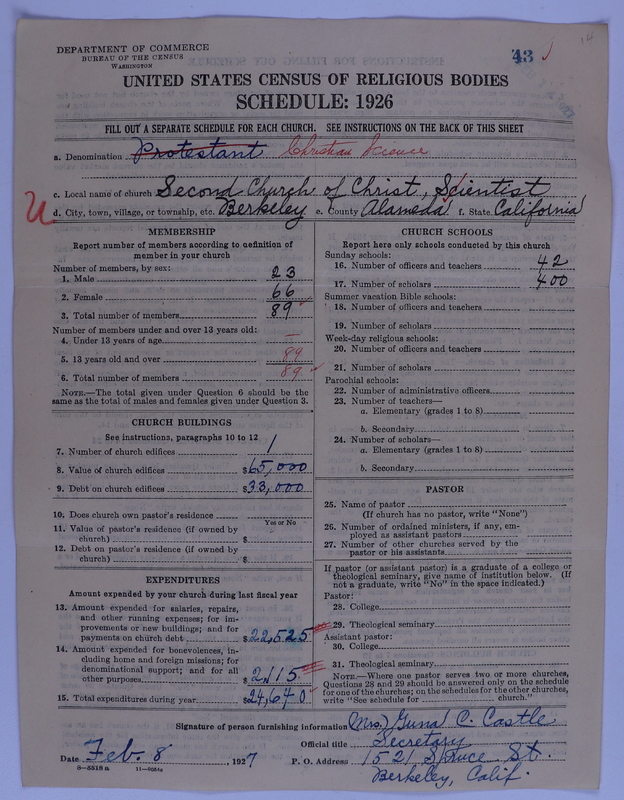 DEPARTMENT OF COMMERCE
BUREAU OF THE CENSUS
WASHINGTON
43
14
UNITED STATES CENSUS OF RELIGIOUS BODIES
SCHEDULE: 1926
FILL OUT A SEPARATE SCHEDULE FOR EACH CHURCH. SEE INSTRUCTIONS ON THE BACK OF THIS SHEET
a. Denomination Protestant Christian Science
c. Local name of church Second Church of Christ, Scientist
U
d. City, town, village, or township, etc. Berkeley e. County Alameda f. State California
MEMBERSHIP
Report number of members according to definition of
member in your church
Number of members, by sex:
1. Male 23
2. Female 66
3. Total number of members 89
Number of members under and over 13 years old:
4. Under 13 years of age —
5. 13 years old and over 89
6. Total number of members 89
NOTE.—The total given under Question 6 should be
same as the total of males and females given under Question 3.
CHURCH BUILDINGS
See instructions, paragraphs 10 to 12
7. Number of church edifices 1
8. Value of church edifices $65,000
9. Debt on church edifices $33,000
10. Does church own pastor's residence
Yes or No
11. Value of pastor's residence (if owned by
church) $
12. Debt on pastor's residence (if owned by
church) $
EXPENDITURES
Amount expended by your church during last fiscal year
13. Amount expended for salaries, repairs,
and other running expenses; for im-
provements or new buildings; and for
payments on church debt $22,525
14. Amount expended for benevolences, in-
cluding home and foreign missions; for
denominational support; and for all
other purposes $2,115
15. Total expenditures during year $24,640
CHURCH SCHOOLS
Report here only schools conducted by this church
Sunday schools:
16. Number of officers and teachers 42
17. Number of scholars 400
Summer vacation Bible schools:
18. Number of officers and teachers
19. Number of scholars
Week-day religious schools:
20. Number of officers and teachers
21. Number of scholars
Parochial schools:
22. Number of administrative officers
23. Number of teachers—
a. Elementary (grades 1 to 8)
b. Secondary
24. Number of scholars—
a. Elementary (grades 1 to 8)
b. Secondary
PASTOR
25. Name of pastor
(If church has no pastor, write "None")
26. Number of ordained ministers, if any, em-
ployed as assistant pastors
27. Number of other churches served by the
pastor or his assistants
If pastor (or assistant pastor) is a graduate of a college or
theological seminary, give name of institution below. (If
not a graduate, write "No" in the space indicated.)
Pastor:
28. College
29. Theological seminary
Assistant pastor:
30. College
31. Theological seminary
NOTE.—Where one pastor serves two or more churches,
Questions 28 and 29 should be answered only on the schedule
for one of the churches; on the schedules for the other churches,
write "See schedule for church."
Signature of person furnishing information (Mrs.) C. Castle
Official title Secretary
Date Feb. 8, 1927 P. O. Address 1521 Spruce St.
8—5518 a Berkeley, Calif.